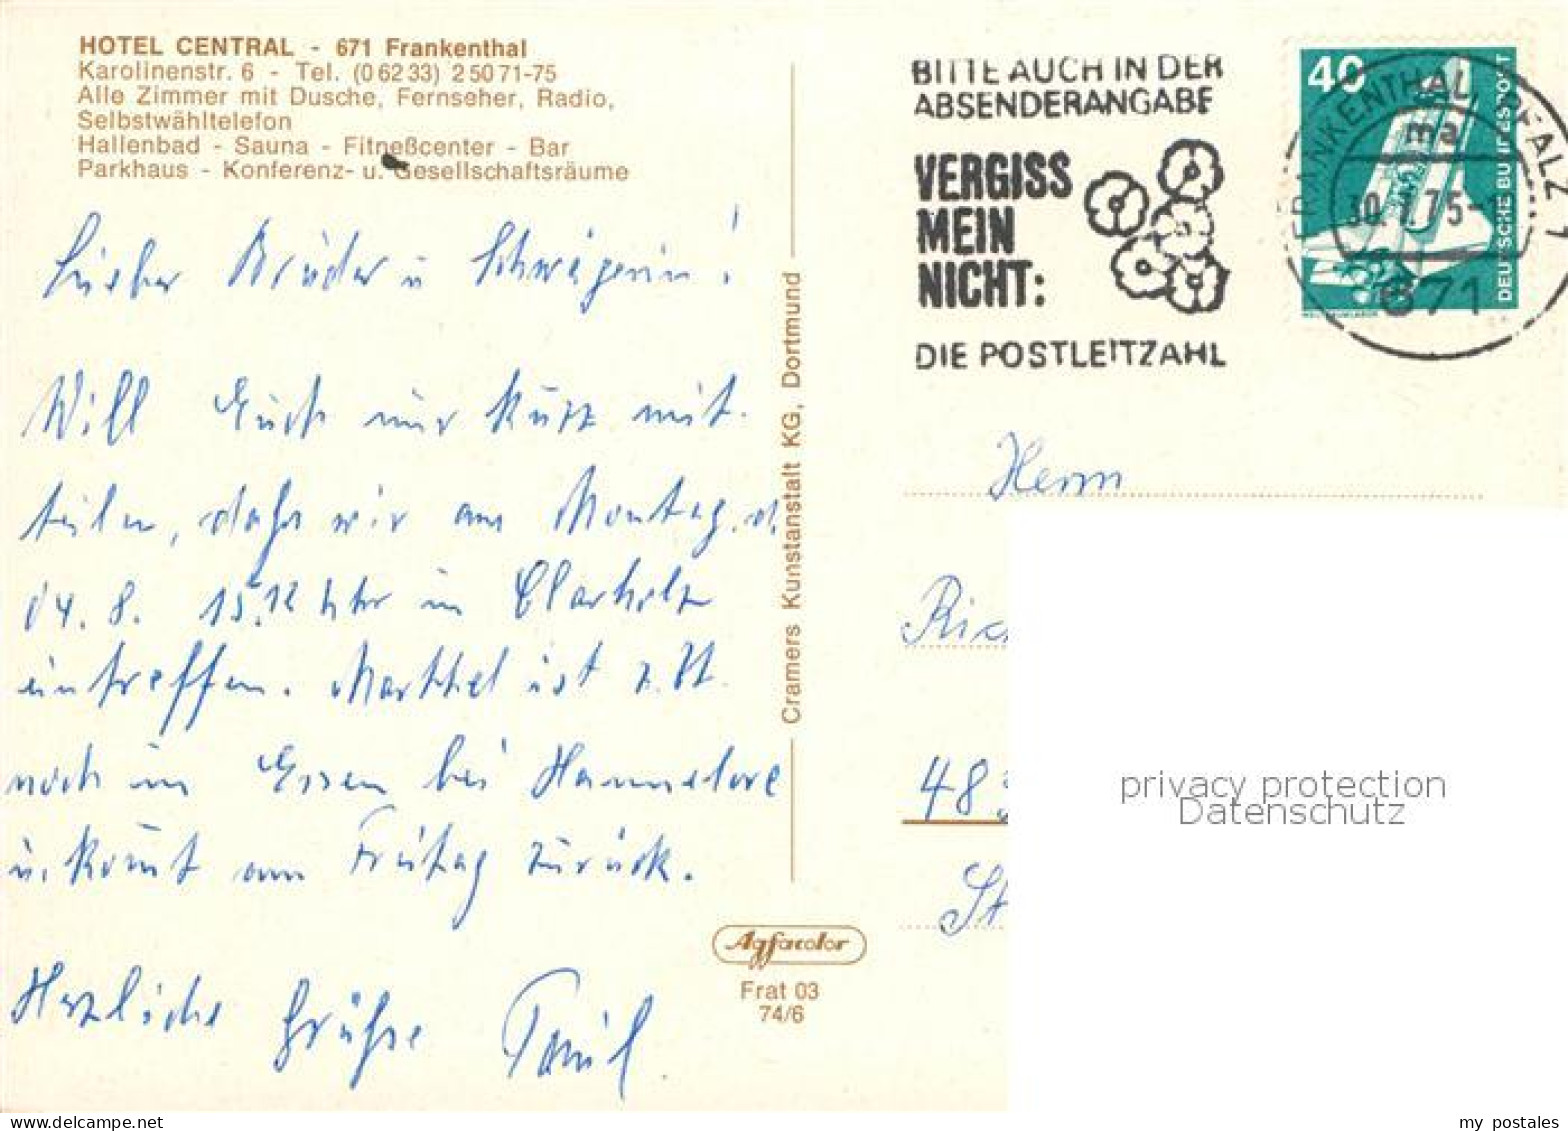 HOTEL CENTRAL - 671 Frankenthal
Karolinenstr. 6 - Tel. (0 62 33) 2 50 71-75
Alle Zimmer mit Dusche, Fernseher, Radio,
Selbstwähltelefon
Hallenbad - Sauna - Fitneßcenter - Bar
Parkhaus - Konferenz- u. Gesellschaftsräume
Lieber Bruder u Schwägerin!
Will Euch nur kurz mit-
teilen, daß wir am Montag. d.
04. 8. 15.12 Uhr in Clarholz
eintreffen. ist z. Zt.
noch in Essen bei Hannelore
u. kommt am Freitag zurück.
Herzliche Grüße
Cramers Kunstanstalt KG, Dortmund
Agfacolor
Frat 03
74/6
BITTE AUCH IN DER
ABSENDERANGABE
VERGISS
MEIN
NICHT:
DIE POSTLEITZAHL
40
DEUTSCHE BUNDESPOST
FRANKENTHAL, PFALZ 1
ma
30.7.75-
671
Herrn
Ric
48
St
privacy protection
Datenschutz
my postales